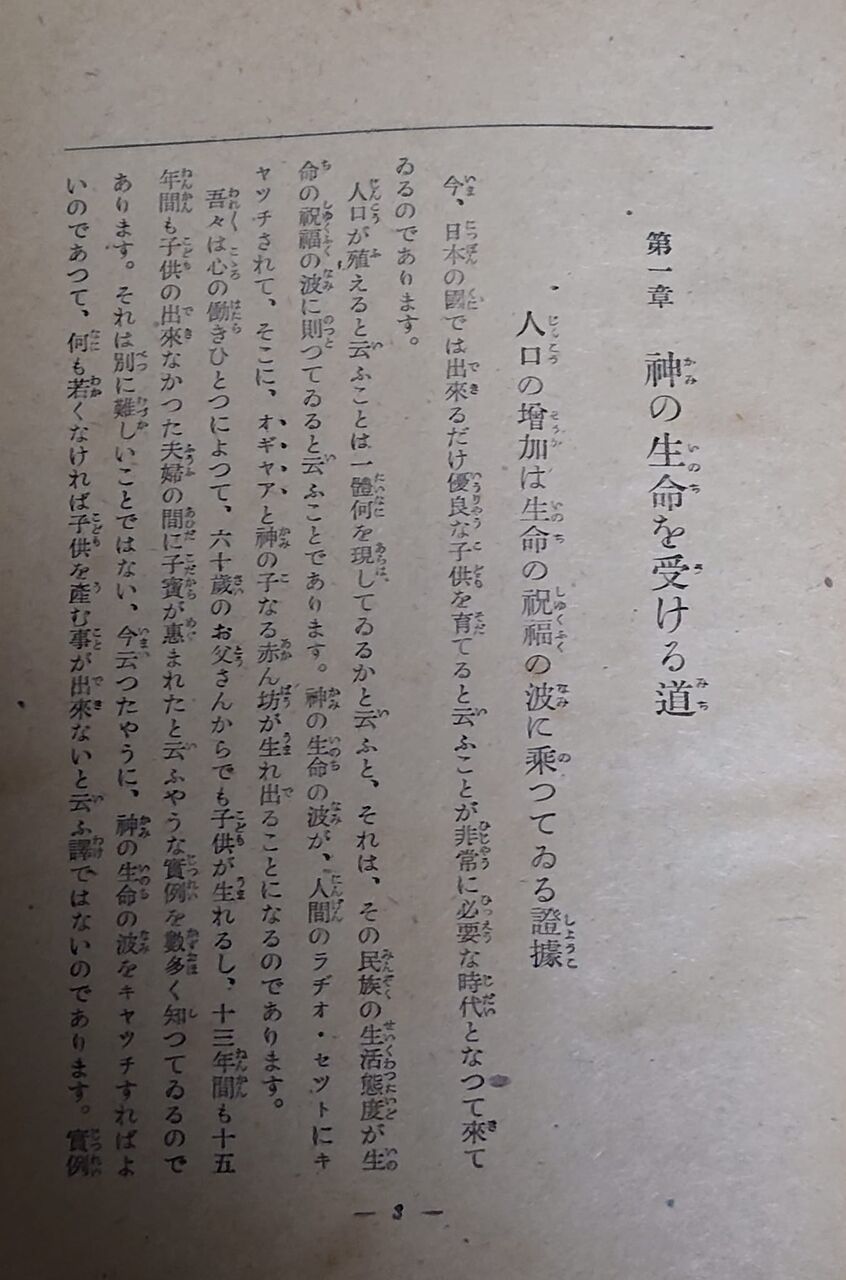 第一章　神の生命を受ける道
人口の增加は生命の祝福の波に乘つてゐる證據
今、日本の國では出來るだけ優良な子供を育てると云ふことが非常に必要な時代となつて來て
ゐるのであります。
人口が殖えると云ふことは一體何を現してゐるかと云ふと、それは、その民族の生活態度が生
命の祝福の波に則つてゐると云ふことであります。神の生命の波が、人間のラヂオ・セツトにキ
ヤツチされて、そこに、オギヤアと神の子なる赤ん坊が生れ出ることになるのであります。
吾々は心の働きひとつによつて、六十歲のお父さんからでも子供が生れるし、十三年間も十五
年間も子供の出來なかつた夫婦の間に子寶が惠まれたと云ふやうな實例を數多く知つてゐるので
あります。それは別に難しいことではない、今云つたやうに、神の生命の波をキヤツチすればよ
いのであつて、何も若くなければ子供を產む事が出來ないと云ふ譯ではないのであります。實例
— 3 —